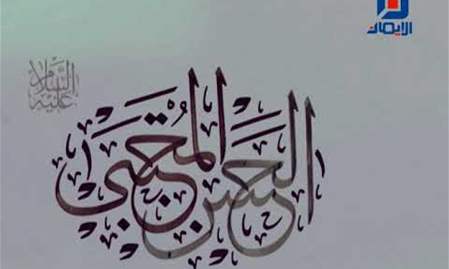 الإيمان
الحسن المجتبى
عليه السلام